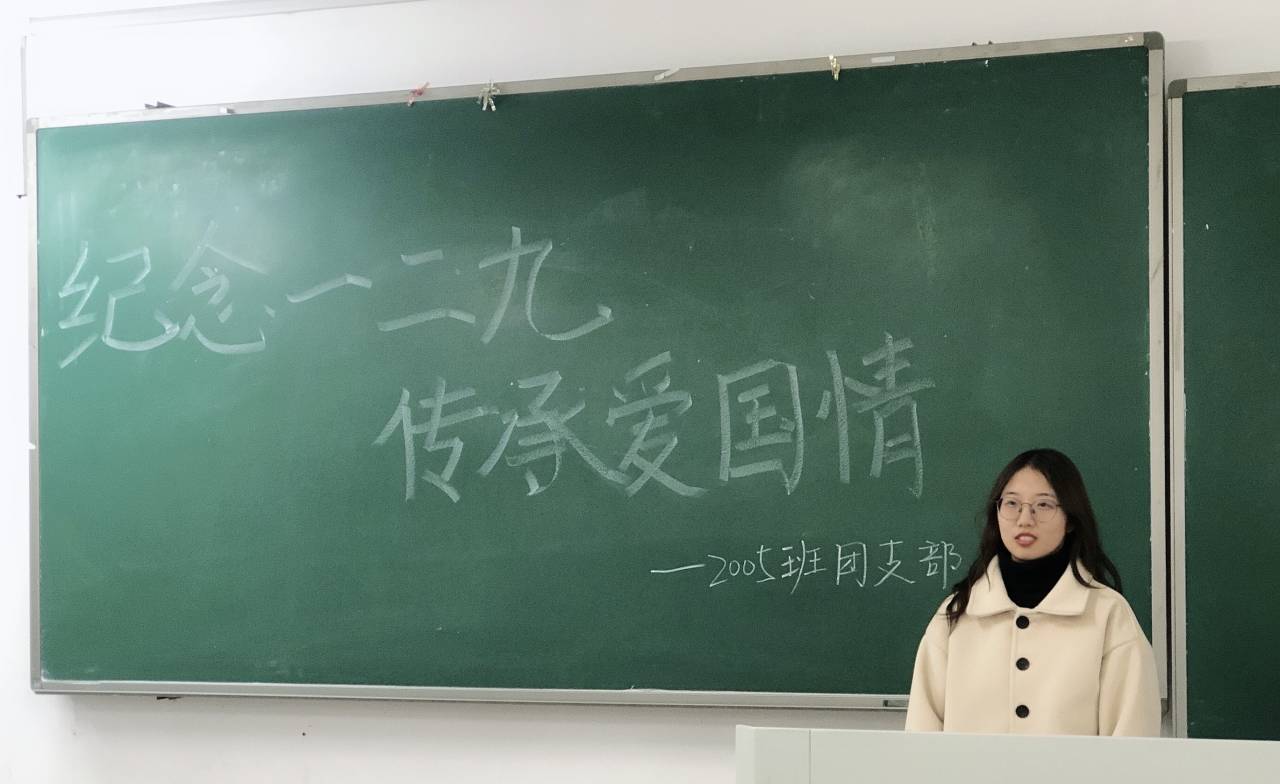 纪念一二九
传承爱国情
—2005班团支部